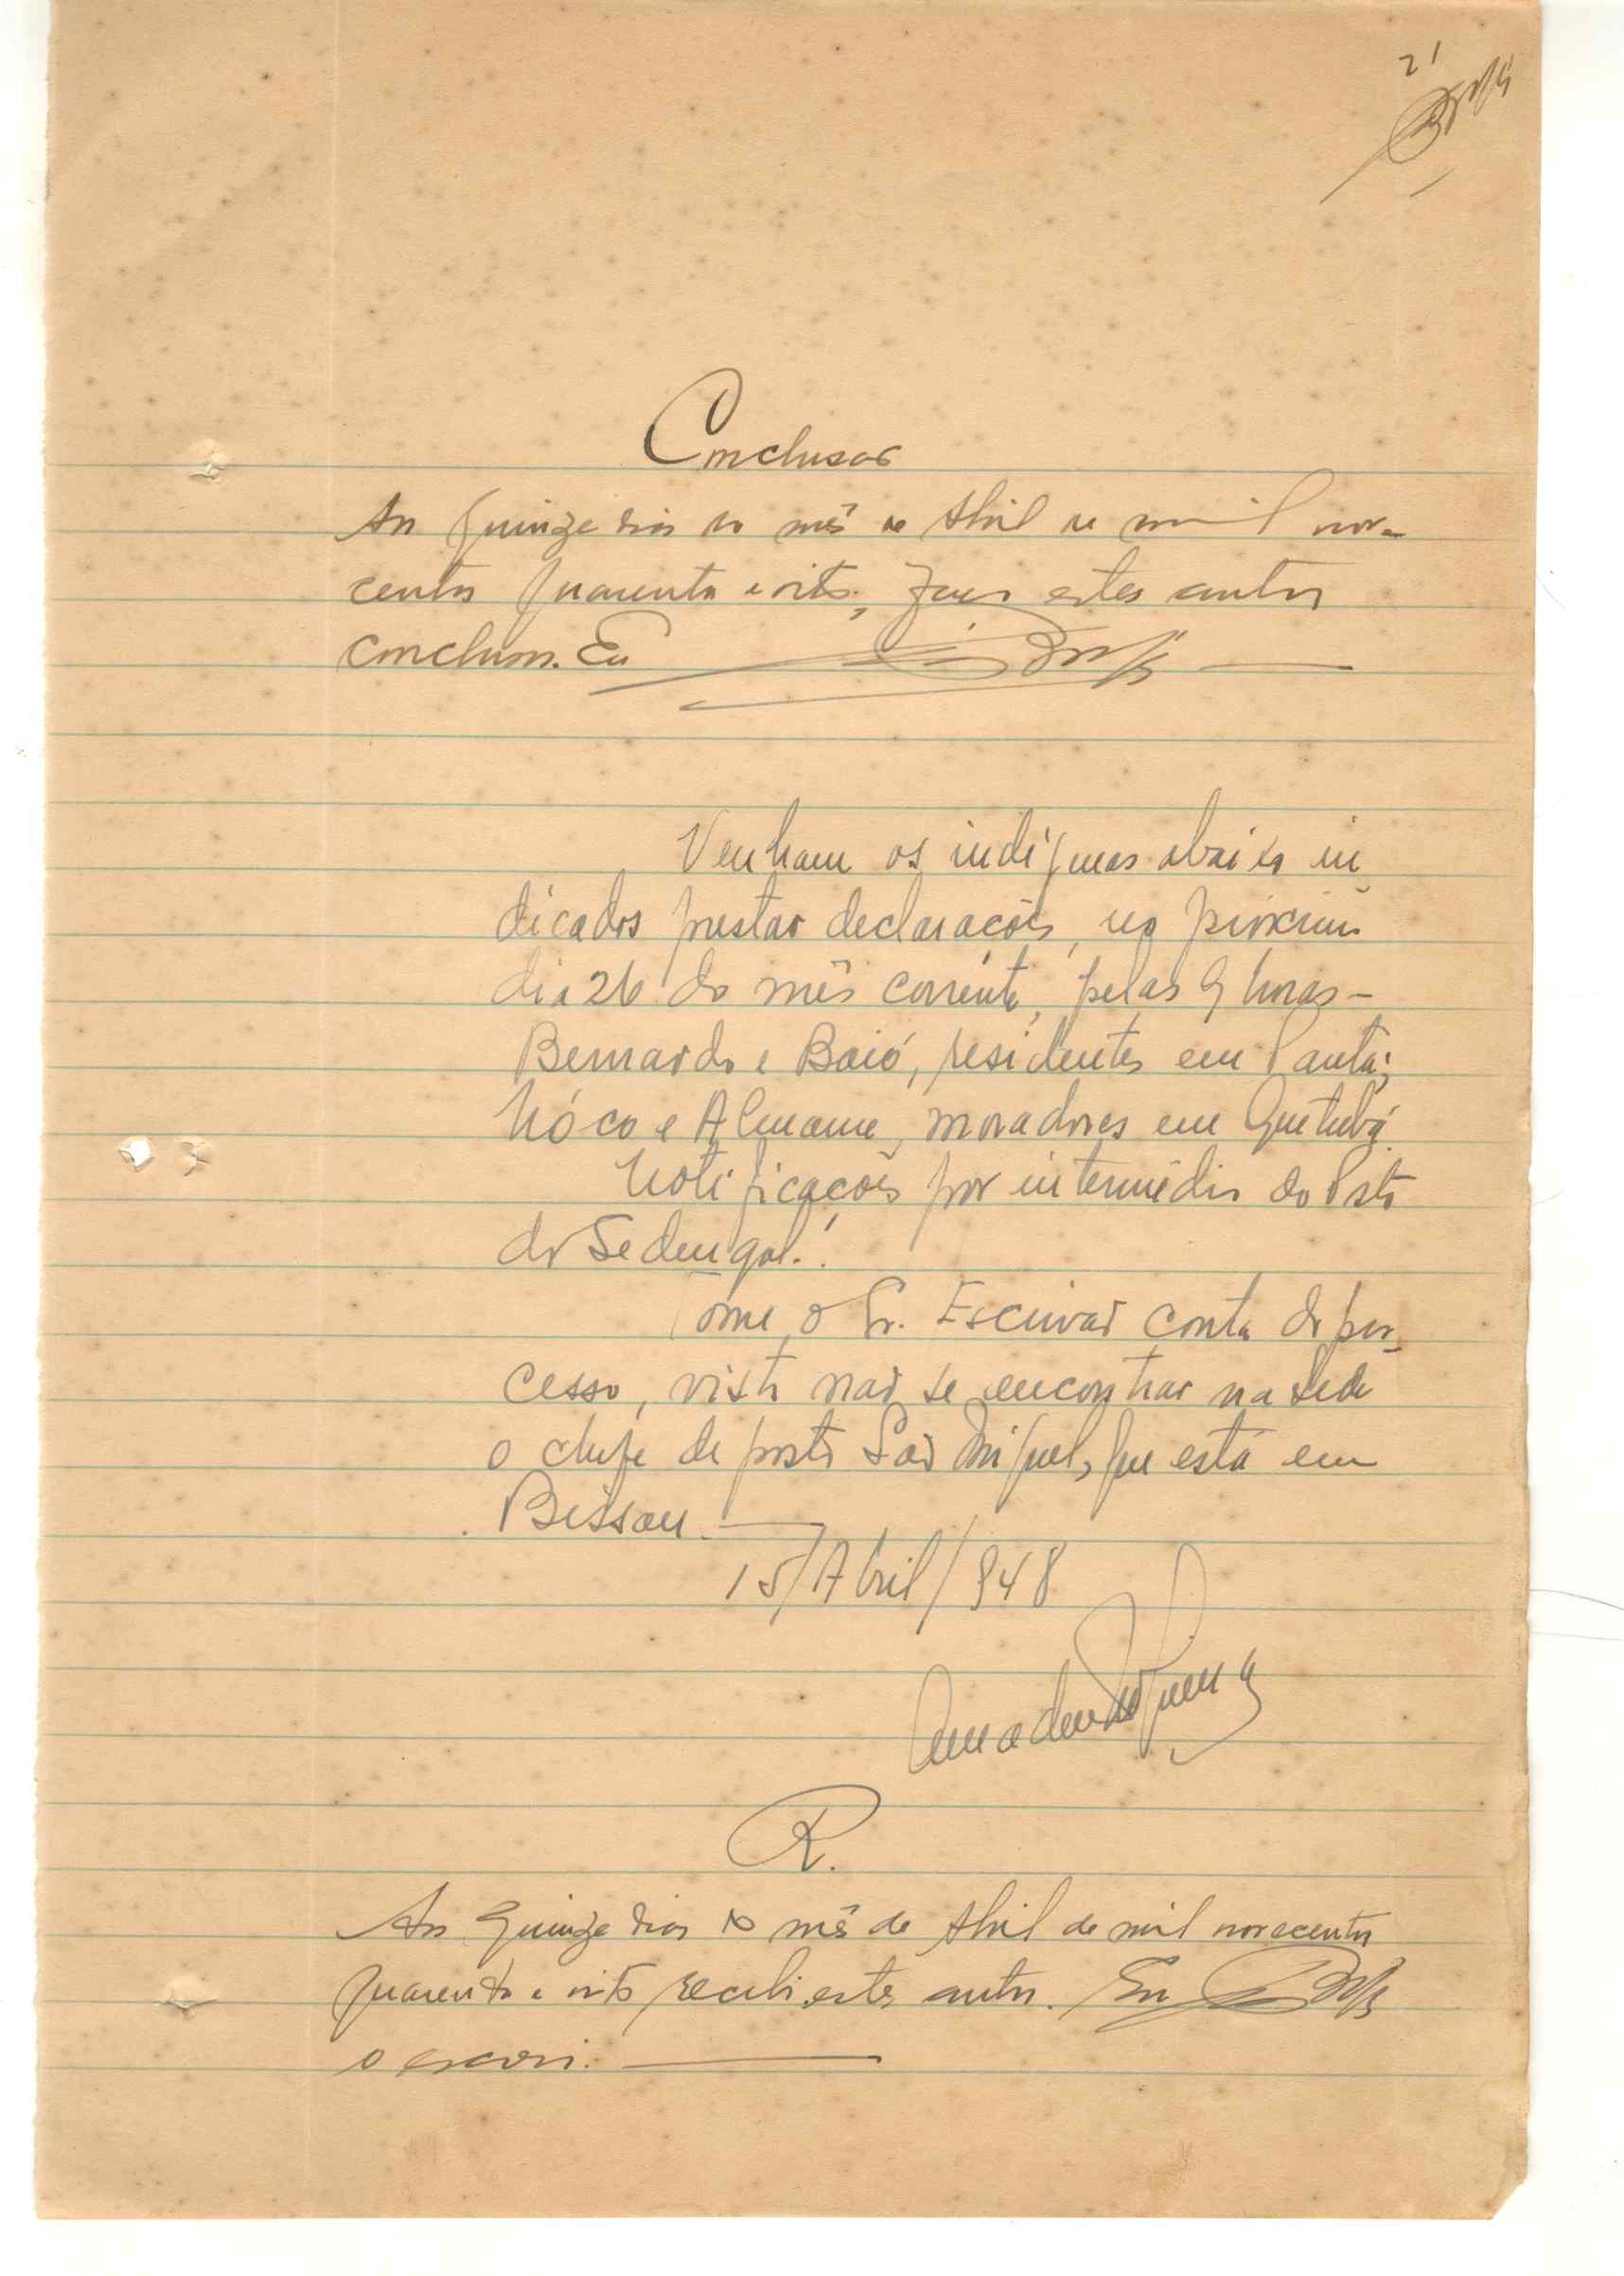 21
Conclusão
Aos quinze dias do mês de Abril de mil nove-
centos quarenta e oito, faço estes autos
conclusos. Eu
Venham os indígenas abaixo in
dicados prestar declarações, no próximo
dia 26 do mês corrente, pelas 9 horas -
Bernardo e Baió, residentes em Panta;
Nóco e Almame, moradores em Quetubá.
Notificações por intermédio do Posto
do Sedengal.
Tome o Sr. Escrivão conta do pro-
cesso, visto não se encontrar na Sede
o chefe de posto São Miguel, que está em
Bissau.
15/Abril/948
R.
Aos quinze dias do mês de Abril de mil novecentos
quarenta e oito recebi estes autos. Eu
o escrevi.